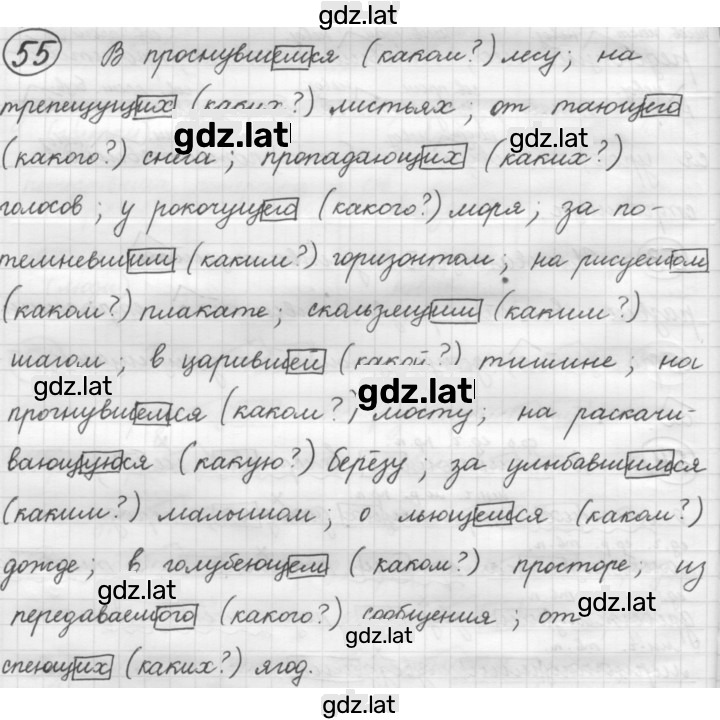 gdz.lat
55 В проснувшемся (каком?) лесу; на
трепещущих (каких?) листьях; от тающего
gdz.lat gdz.lat
(какого?) снега; пропадающих (каких?)
голосов; у рокочущего (какого?) моря; за по-
темневшим (каким?) горизонтом; на рисуемом
(каком?) плакате; скользящим (каким?)
шагом; в царившей (какой?) тишине; на
gdz.lat gdz.lat
прогнувшемся (каком?) мосту; на раскачи-
вающуюся (какую?) берёзу; за улыбавшимся
(каким?) малышом; о льющемся (каком?)
дожде; в голубеющем (каком?) просторе; из
gdz.lat gdz.lat
передаваемого (какого?) сообщения; от
gdz.lat
спеющих (каких?) ягод.
gdz.lat